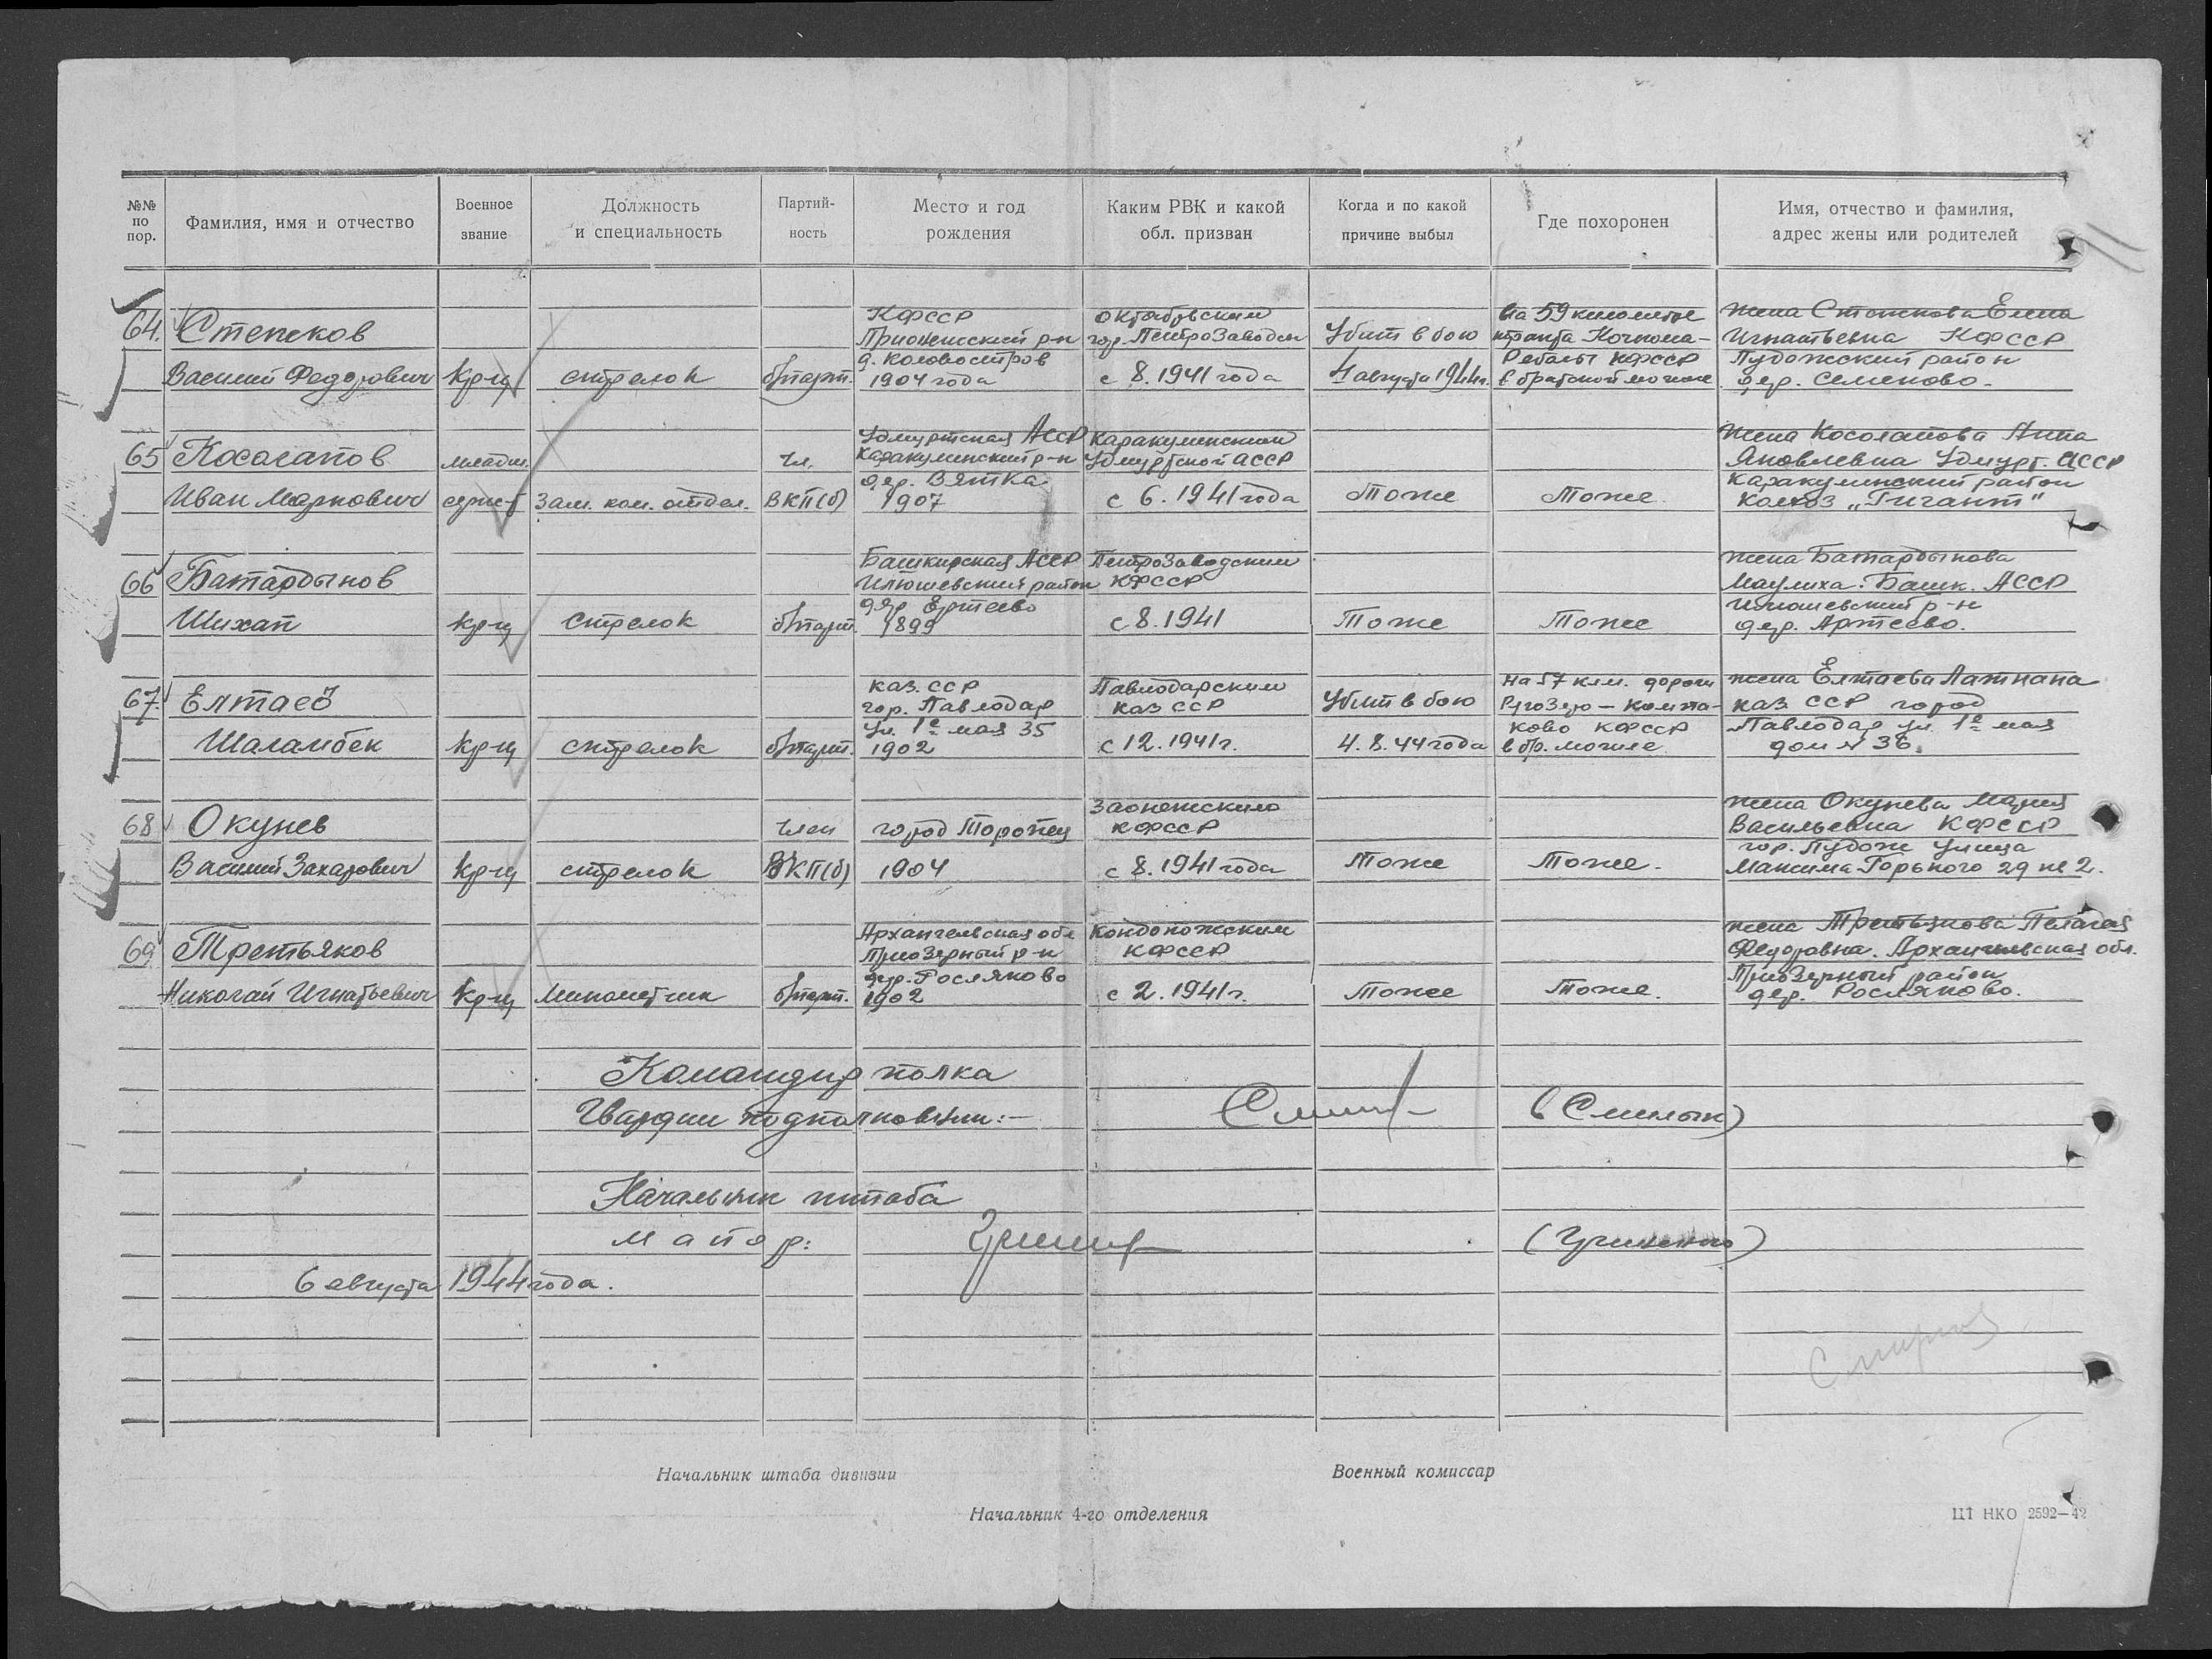 №№ по пор.
Фамилия, имя и отчество
Военное звание
Должность и специальность
Партий-ность
Место и год рождения
Каким РВК и какой обл. призван
Когда и по какой причине выбыл
Где похоронен
Имя, отчество и фамилия, адрес жены или родителей
64.
Степков
Василий Федорович
кр-ц
стрелок
б/парт.
КФССР
Прионежский р-н
д.
1904 года
Октябрьским
гор. Петрозаводск
с 8.1941 года
Убит в бою
4 августа 1944г.
На 59 километре
тракта Кочкома-
Реболы КФССР
в братской могиле
жена Степкова Елена
Игнатьевна КФССР
Пудожский район
дер. Семеново.
65
Косолапов
Иван Маркович
младш.
серж-т
Зам. ком. отдел.
Чл.
ВКП(б)
Удмуртская АССР
Каракулинский р-н
дер. Вятка
1907
Каракулинским
Удмуртской АССР
с 6.1941 года
Тоже
Тоже
жена Косолапова Анна
Яковлевна Удмурт. АССР
Каракулинский район
Колхоз „Гигант"
66
Батардынов
Шихап
кр-ц
Стрелок
б/парт.
Башкирская АССР
Илюшевский район
дер Ертеево
1899
Петрозаводским
КФССР
с 8.1941
Тоже
Тоже
жена Батардынова
Маулиха. Башк. АССР
Илюшевский р-н
дер. Артеево.
67.
Елтаев
Шаламбек
кр-ц
стрелок
б/парт.
каз. ССР
гор. Павлодар
ул. 1е мая 35
1902
Павлодарским
каз ССР
с 12.1941г.
Убит в бою
4.8.44 года
На 57 клм. дороги
ково КФССР
в бр. могиле
жена Елтаева Латнана
каз ССР город
Павлодар ул. 1е мая
дом № 36.
68
Окунев
Василий Захарович
кр-ц
стрелок
Член
ВКП(б)
город Торопец
1904
Заонежским
КФССР
с 8.1941 года
Тоже
Тоже.
жена Окунева Мария
Васильевна КФССР
гор. Пудож улица
Максима Горького 29 кв 2.
69
Третьяков
Николай Игнатьевич
кр-ц
Минометчик
б/парт.
Архангельская обл
Приозерный р-н
дер. Росляково
1902
Кондопожским
КФССР
с 2.1941г.
Тоже
Тоже.
жена Третьякова Пелагея
Федоровна. Архангельская обл.
Приозерный район
дер. Росляково.
Командир полка
Гвардии подполковник:—
Начальник штаба
майор:
6 августа 1944 года.
Начальник штаба дивизии
Военный комиссар
Начальник 4-го отделения
ЦТ НКО 2592—42